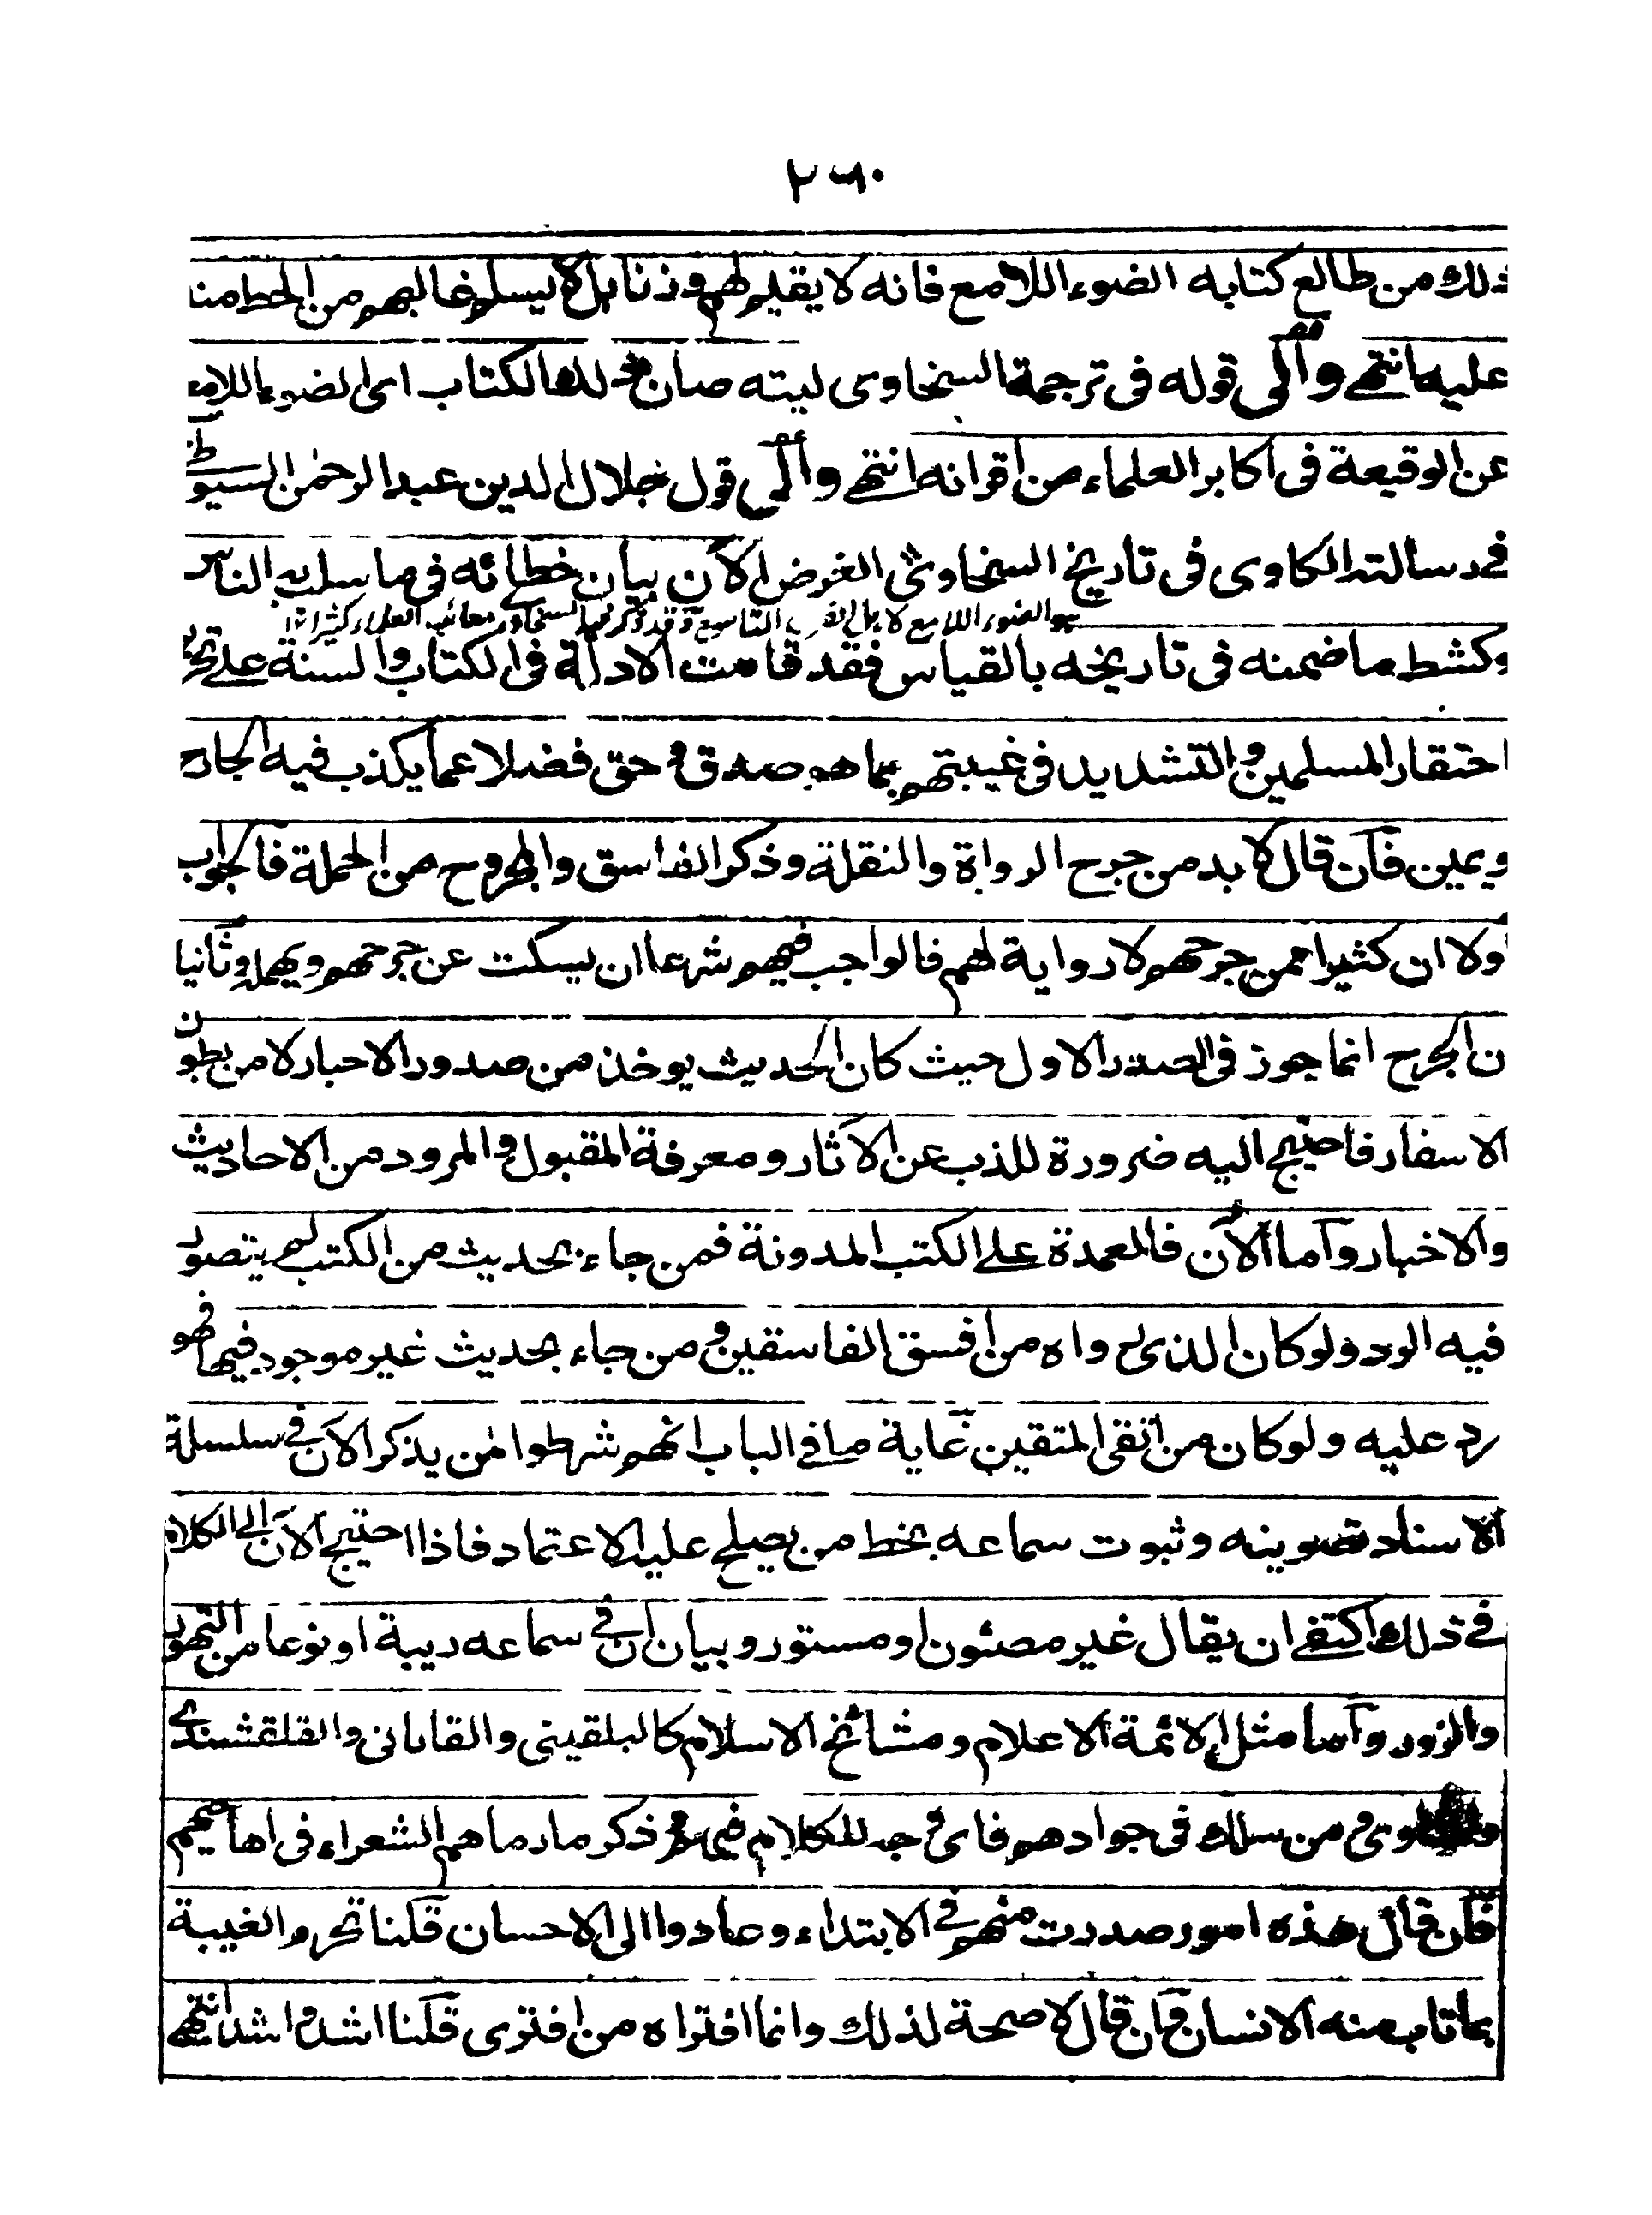 ٢٦٠
ذلك من طالع كتابه الضوء اللامع فانه لا يقيم لهم وزنا بل لا يسلم غالبهم من الحط منه
عليه انتهى وألى قوله فى ترجمة السخاوى ليته صان ذلك الكتاب اى الضوء اللامع
عن الوقيعة فى اكابر العلماء من اقرانه انتهى وألى قول جلال الدين عبد الرحمن السيوطى
فى رسالته الكاوى فى تاريخ السخاوى الغرض الآن بيان خطائه فى ما سلب به الناس
هو الضوء اللامع لاهل القرن التاسع وقد ذكر فيه السخاوى معائب العلماء كثيرا
وكشط ما ضمنه فى تاريخه بالقياس فقد قامت الادلة فى الكتاب والسنة على تحريم
احتقار المسلمين والتشديد فى غيبتهم بما هو صدق وحق فضلا عما يكذب فيه الجارح
ويمين فآن قال لا بد من جرح الرواة والنقلة وذكر الفاسق والمجروح من الحملة فالجواب
اولا ان كثيرا ممن جرحهم لا رواية لهم فالواجب فيهم شرعا ان يسكت عن جرحهم ويهمله وثانيا
ن الجرح انما جوز فى الصدر الاول حيث كان الحديث يوخذ من صدور الاحبار لا من بطون
الاسفار فاحتيج اليه ضرورة للذب عن الآثار ومعرفة المقبول والمردود من الاحاديث
والاخبار وآما الآن فالعمدة على الكتب المدونة فمن جاء بحديث من الكتب لم يتصور
فيه الرد ولو كان الذى رواه من افسق الفاسقين ومن جاء بحديث غير موجود فيها فهو
رد عليه ولو كان من اتقى المتقين غاية ما فى الباب انهم شرطوا لمن يذكر الآن فى سلسلة
الاسناد تصوينه وثبوت سماعه بخط من يصلح عليه الاعتماد فاذا احتيج الآن الى الكلام
فى ذلك اكتفى ان يقال غير مصئون او مستور وبيان ان فى سماعه ريبة او نوعا من التهور
والزور وآما مثل الائمة الاعلام ومشائخ الاسلام كالبلقينى والقاياتى والقلقشندى
ومن سلك فى جوادهم فاى وجه للكلام فيهم وذكر ما رماهم الشعراء فى اهاجيهم
فآن قال هذه امور صدرت منهم فى الابتداء وعادوا الى الاحسان قلنا تحرم الغيبة
بما تاب منه الانسان فآن قال لا صحة لذلك وانما افتراه من افترى قلنا اشد واشد انتهى